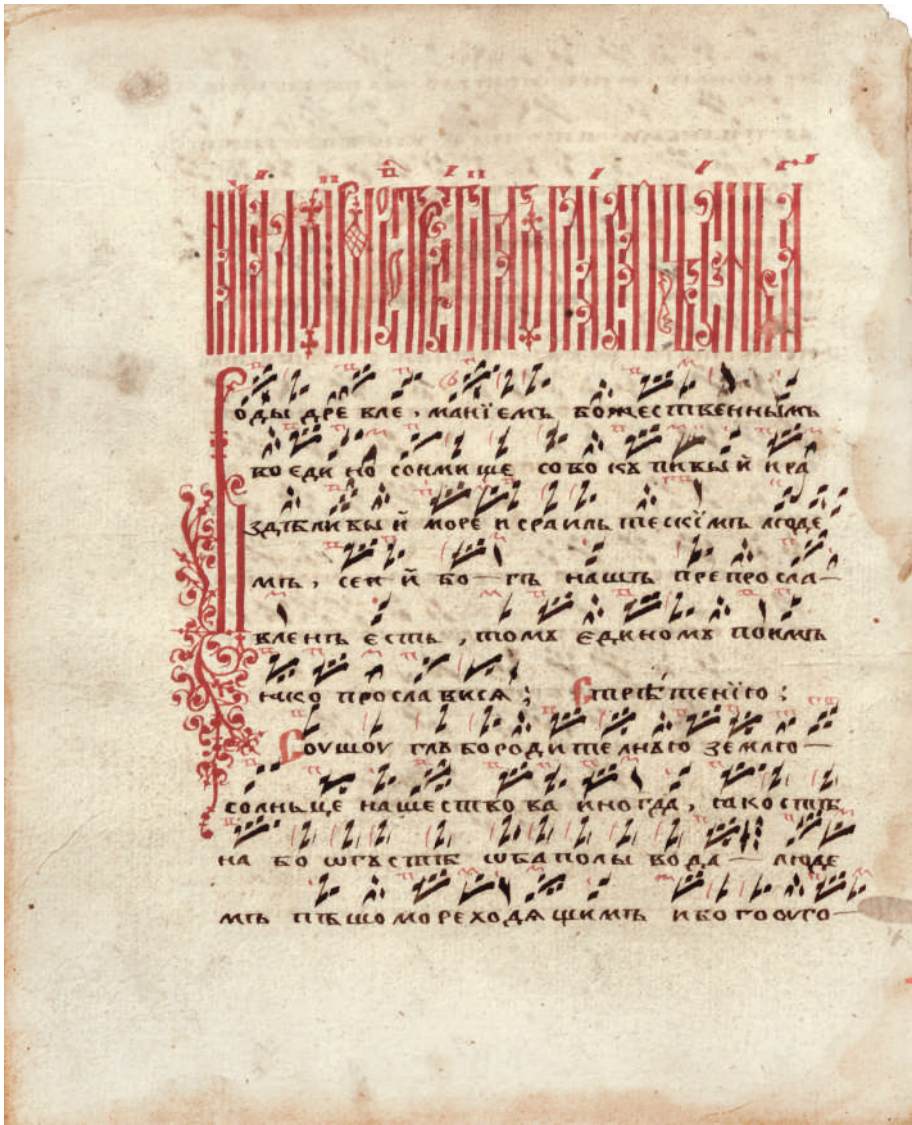 оды древле, манїемъ божественнымъ
во едино сонмище совокꙋпивый и ра
здѣливый море исраильтескїмъ люде
мъ, сей бо гъ нашъ препросла
вленъ єсть, томꙋ єдиномꙋ поимъ
ꙗко прославися; Стрѣтенїю:
Соушоу глꙋбородителнꙋю землю
солньце нашествова иногда, ꙗко стѣ
на бо ѡгꙋстѣ ѡбаполы вода люде
мъ пѣшо мореходящимъ и богооуго